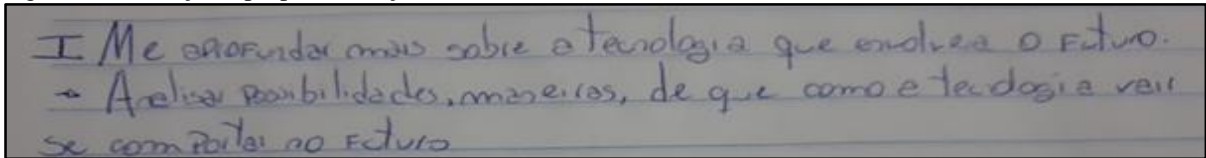 I Me aprofundar mais sobre a tecnologia que envolve a o Futuro.
→ Analisar possibilidades, maneiras, de que como a tecnologia vai
se comportar no Futuro